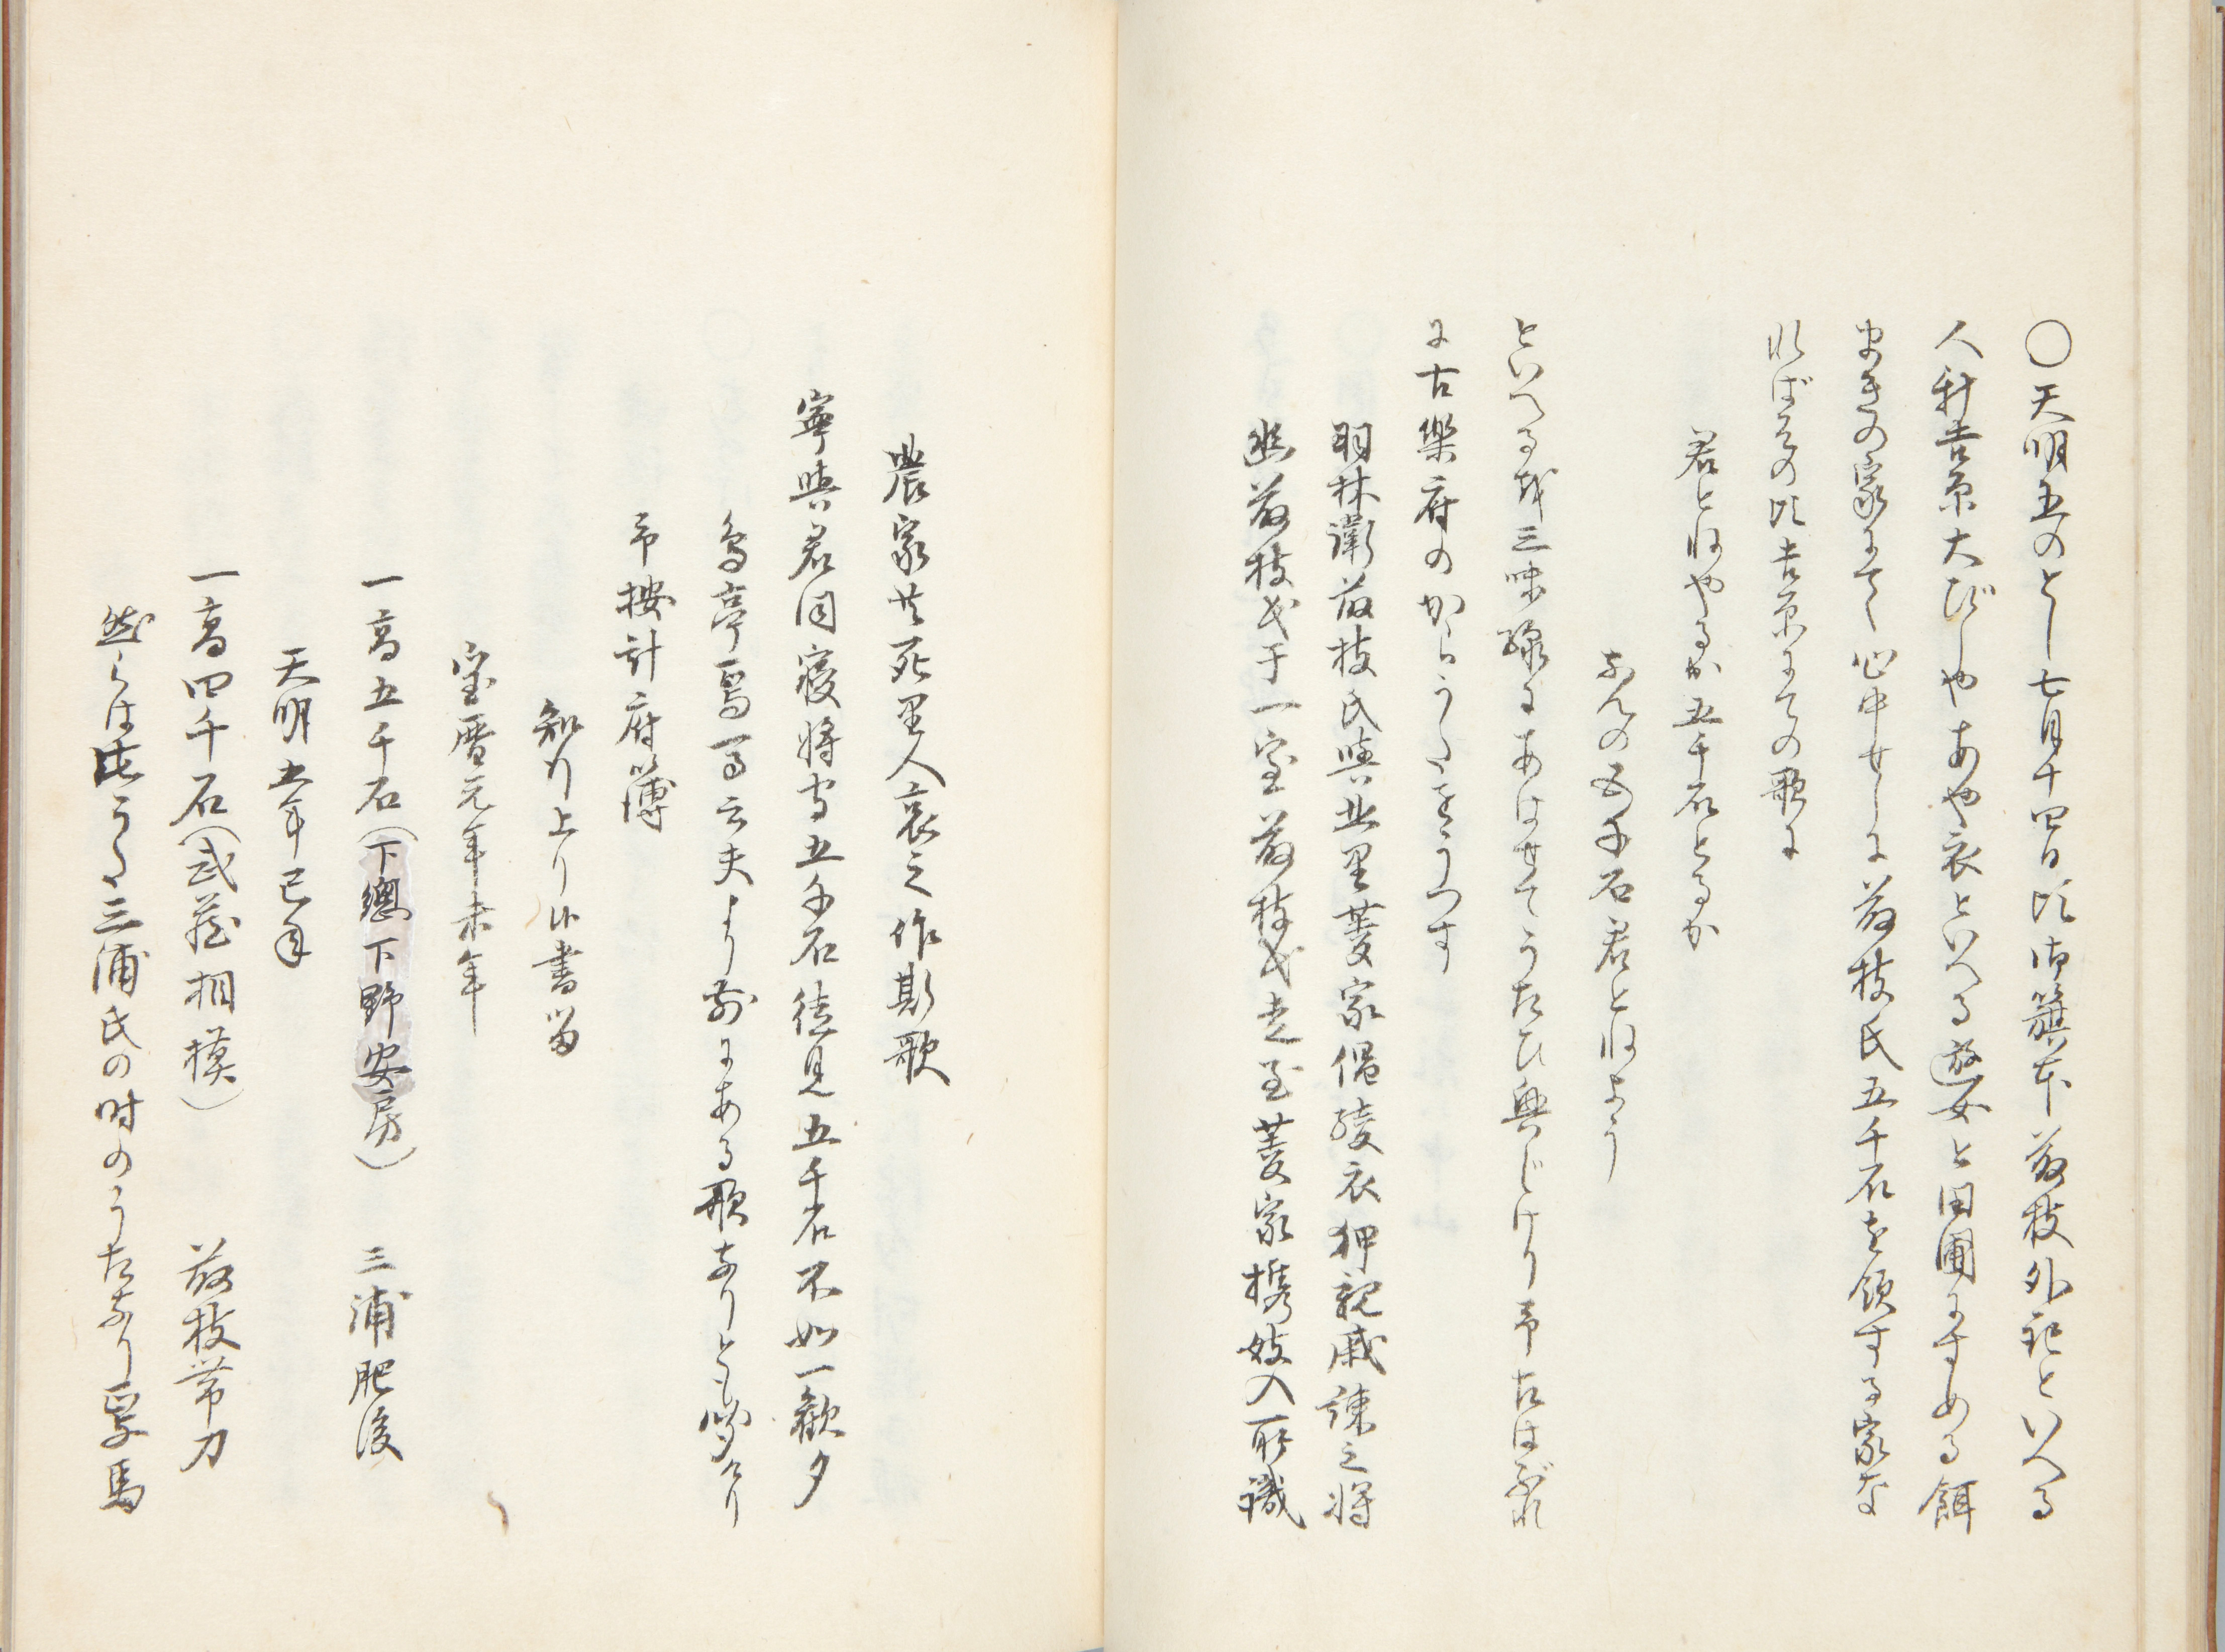 〇天明五のとし七月十四日比御籏本藤枝外記といへる
人新吉原大びしやあや衣といへる遊女と田圃にすめる餌
まきの家にて心中せしに藤枝氏五千石を領する家な
ればその比吉原にての歌に
君とねやるか五千石とるか
なんの五千石君とねよう
といへる哥三味線にあはせてうたひ興じけり予たはぶれ
に古樂府のからうたをうつす
羽林衛藤枝氏與北里菱家倡綾衣狎親戚諌之将
幽藤枝氏于一室藤枝氏走至菱家携妓入所識
農家共死里人哀之作斯歌
寧與君同寝将守五千石徒見五千石不如一歓夕
烏亭焉馬云夫より前にある歌なりとも聞り
予按計府簿
知行上り候書留
宝暦元年未年
一高五千石(下總下野安房)　三浦肥後
天明五年巳年
一高四千石(武蔵相模)　藤枝帯刀
然らは此うた三浦氏の時のうたなり焉馬